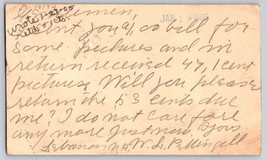 JAN
Gentlemen
I sent you $1.00 bill for
some pictures and in
return received 47, 1 cent
pictures, Will you please
return the 53 cents due
me? I do not care for
any more just now. Yours
Lebanon NH W. L. Pettingill